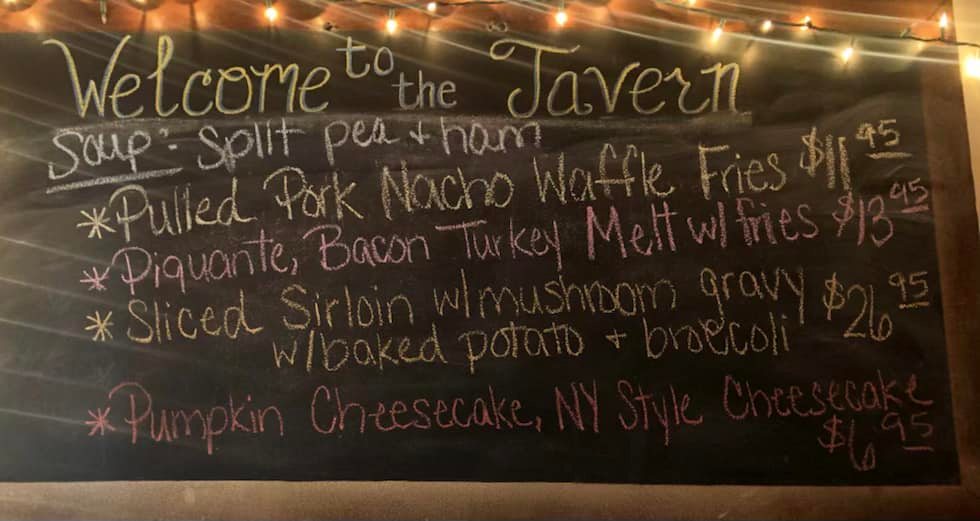 Welcome to the Tavern
Soup: Split pea + ham
*Pulled Pork Nacho Waffle Fries $11 45
*Piquante, Bacon Turkey Melt w/ fries $13 45
*Sliced Sirloin w/ mushroom gravy $26 95
w/ baked potato + broccoli
*Pumpkin Cheesecake, NY Style Cheesecake
$6 95